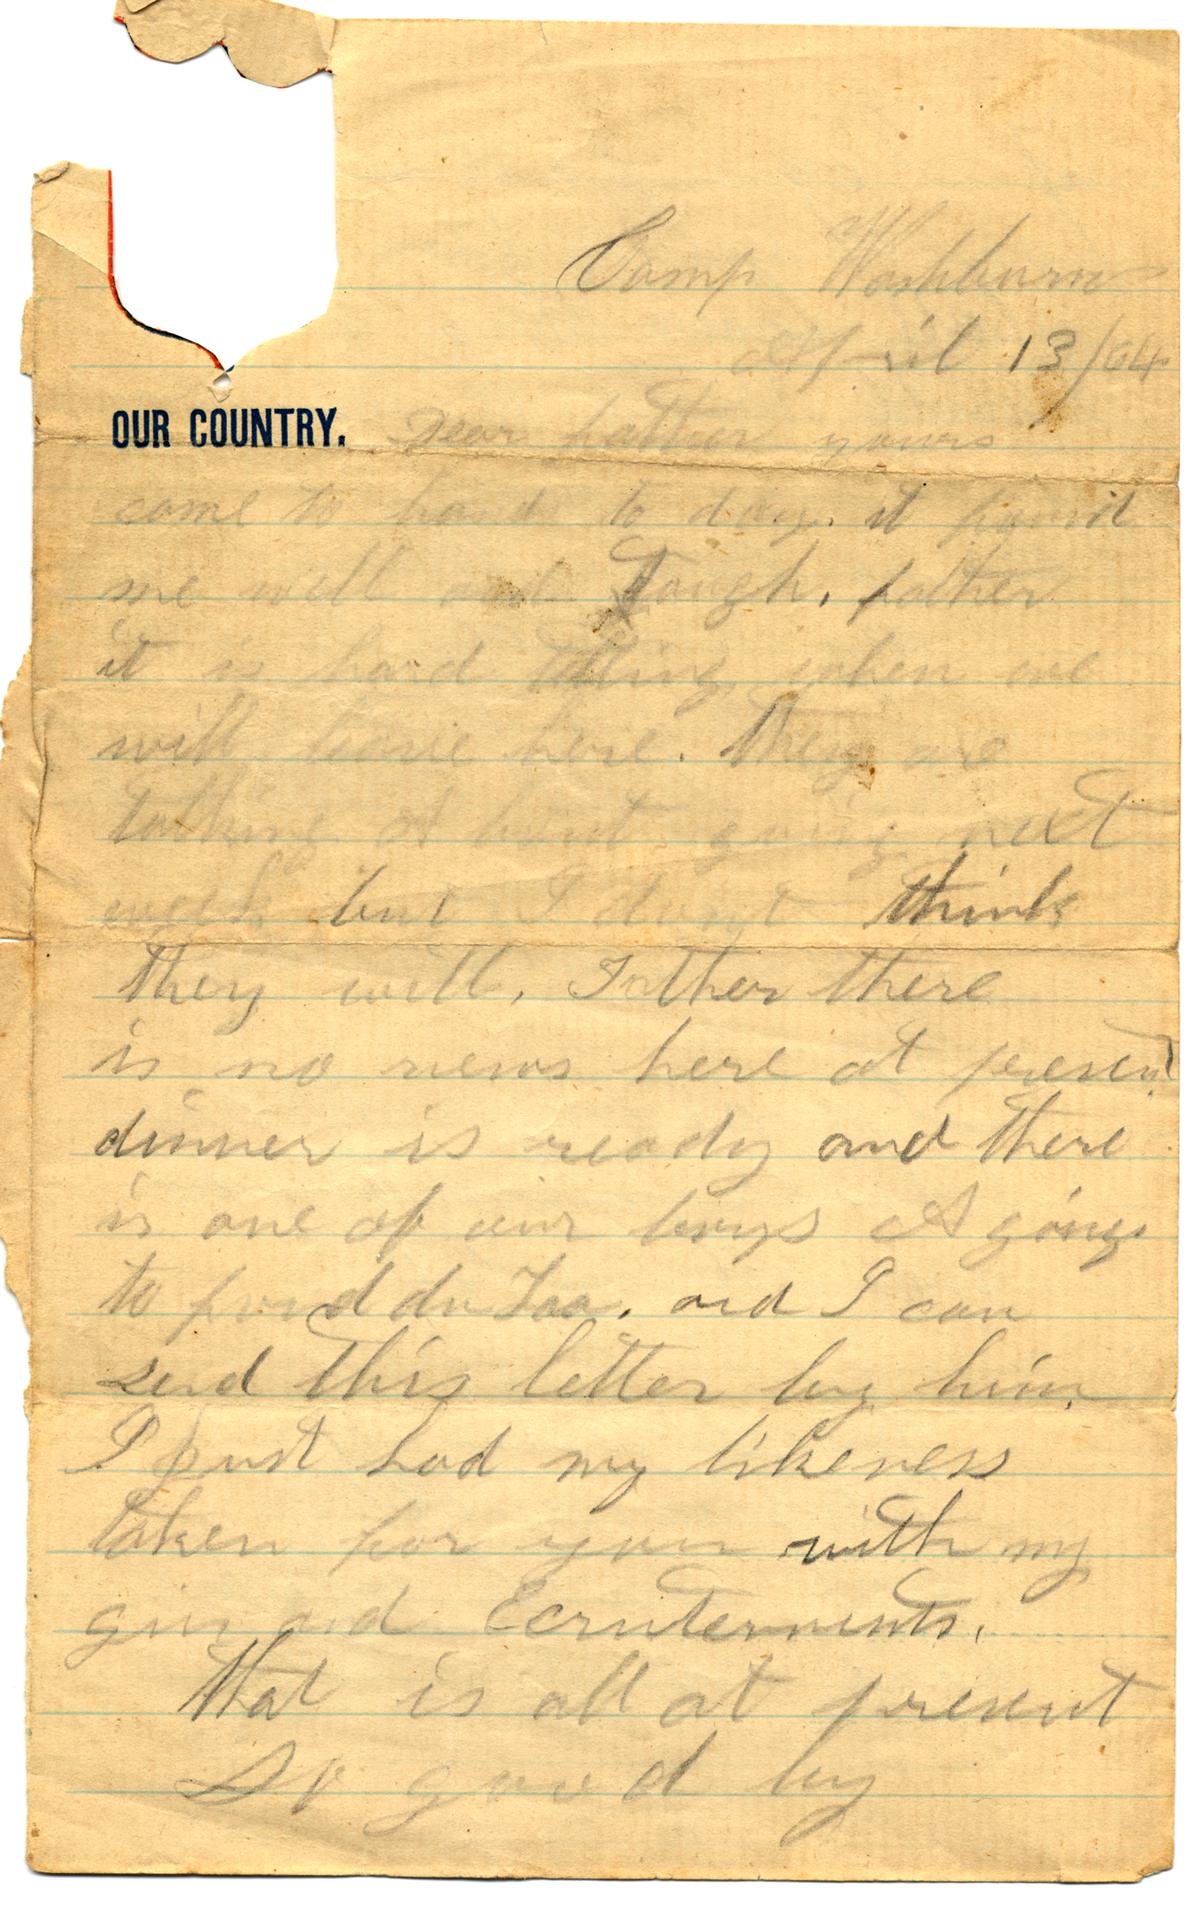 Camp Washburn
April 13/64
OUR COUNTRY.
Dear father yours
come to hand to day. it found
me well and tough. father
it is hard telling when we
will leave here. they are
talking A bout going next
week but I dont think
they will. Father there
is no news here at present
dinner is ready and there
is one of our boys A going
to fond du Laa. and I can
send this letter by him
I just had my likeness
taken for you with my
gun and Ecruterments.
that is all at present
So good by